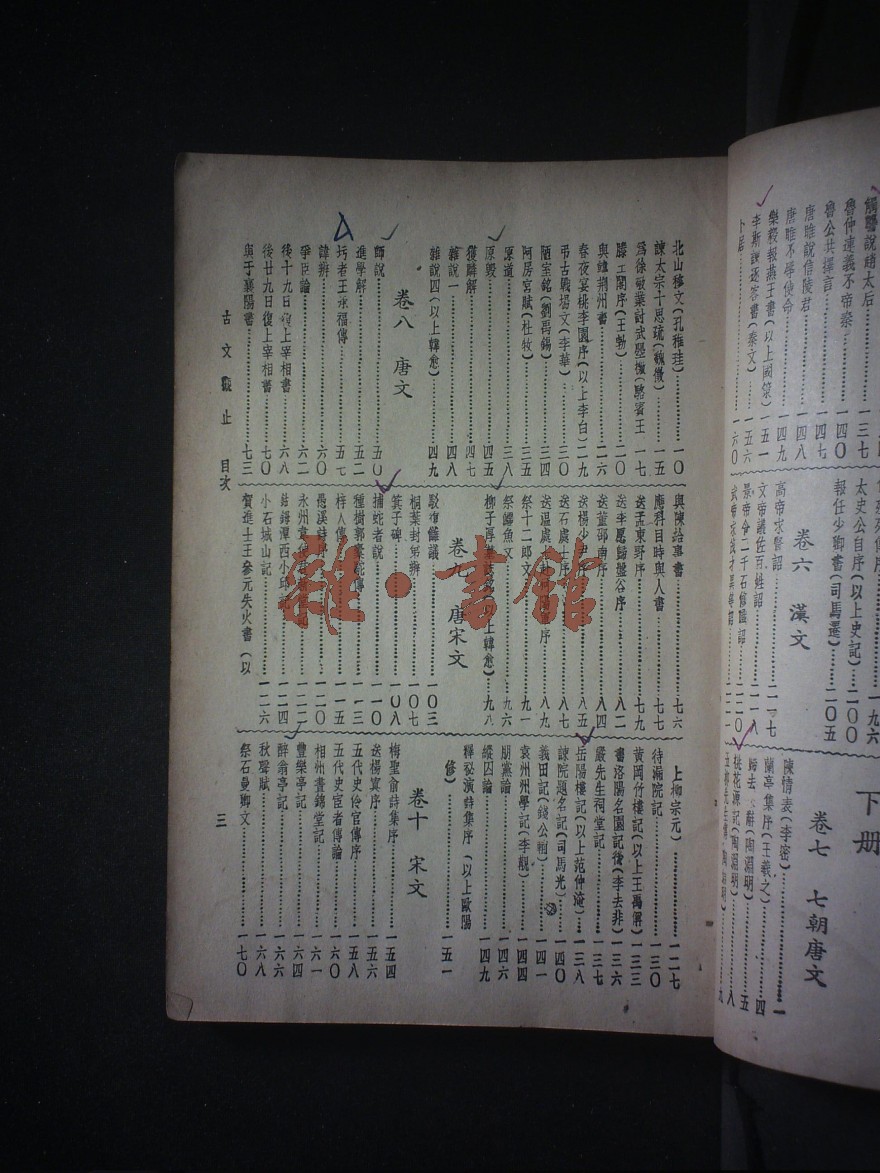 觸讋說趙太后……一三七
魯仲連義不帝秦……一四〇
魯公共擇言……一四七
唐雎說信陵君……一四八
唐雎不辱使命……一四九
樂毅報燕王書(以上國策)……一五一
李斯諫逐客書(秦文)……一五六
卜居……一六〇
一九六
太史公自序(以上史記)……二〇〇
報任少卿書(司馬遷)……二〇五
卷六 漢文
高帝求賢詔……二一七
文帝議佐百姓詔……二一八
景帝令二千石修職詔……二二〇
武帝求茂才異等詔……二二一
下册
卷七 七朝唐文
陳情表(李密)……一
蘭亭集序(王羲之)……四
歸去 辭(陶淵明)……五
桃花源記(陶淵明)……八
北山移文(孔稚珪)……一〇
諫太宗十思疏(魏徵)……一五
爲徐敬業討武曌檄(駱賓王 一七
滕王閣序(王勃)……二〇
與韓荆州書……二六
春夜宴桃李園序(以上李白)……二九
弔古戰場文(李華)……三〇
陋室銘(劉禹錫)……三四
阿房宮賦(杜牧)……三五
原道……三八
原毀……四五
獲麟解……四七
雜說一……四八
雜說四(以上韓愈)……四九
卷八 唐文
師說……五〇
進學解……五二
圬者王承福傳……五七
諱辨……六〇
爭臣論……六二
後十九日復上宰相書……六八
後廿九日復上宰相書……七〇
與于襄陽書……七三
與陳給事書……七六
應科目時與人書……七七
送孟東野序……七九
送李愿歸盤谷序……八二
送董邵南序……八四
送楊少尹序……八五
送石處士序……八七
送溫處士 序……八九
祭十二郎文……九一
祭鱷魚文……九六
柳子厚墓 上韓愈)……九八
卷九 唐宋文
駁復讎議……一〇三
桐葉封弟辨……一〇七
箕子碑……一〇八
捕蛇者說……一一〇
種樹郭橐駝傳……一一三
梓人傳……一一五
愚溪詩序……一二〇
永州韋使君新堂記……一二二
鈷鉧潭西小邱記……一二四
小石城山記……一二六
賀進士王參元失火書(以
上柳宗元)……一二七
待漏院記……一三〇
黃岡竹樓記(以上王禹偁)一三三
書洛陽名園記後(李去非)一三六
嚴先生祠堂記……一三七
岳陽樓記(以上范仲淹)……一三八
諫院題名記(司馬光)……一四〇
義田記(錢公輔)……一四一
袁州州學記(李覯)……一四四
朋黨論……一四六
縱囚論……一四九
釋祕演詩集序(以上歐陽
修)……一五一
卷十 宋文
梅聖俞詩集序……一五四
送楊寘序……一五六
五代史伶官傳序……一五八
五代史宦者傳論……一六〇
相州晝錦堂記……一六一
豐樂亭記……一六四
醉翁亭記……一六六
秋聲賦……一六八
祭石曼卿文……一七〇
古文觀止 目次
三
雜·書館